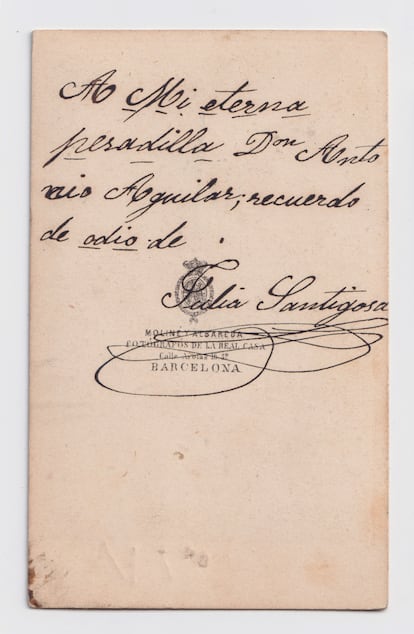 A Mi eterna
pesadilla Don Anto
nio Aguilar; recuerdo
de odio de .
Julia Santigosa
MOLINÉ Y ALBAREDA
FOTÓGRAFOS DE LA REAL CASA
Calle
BARCELONA